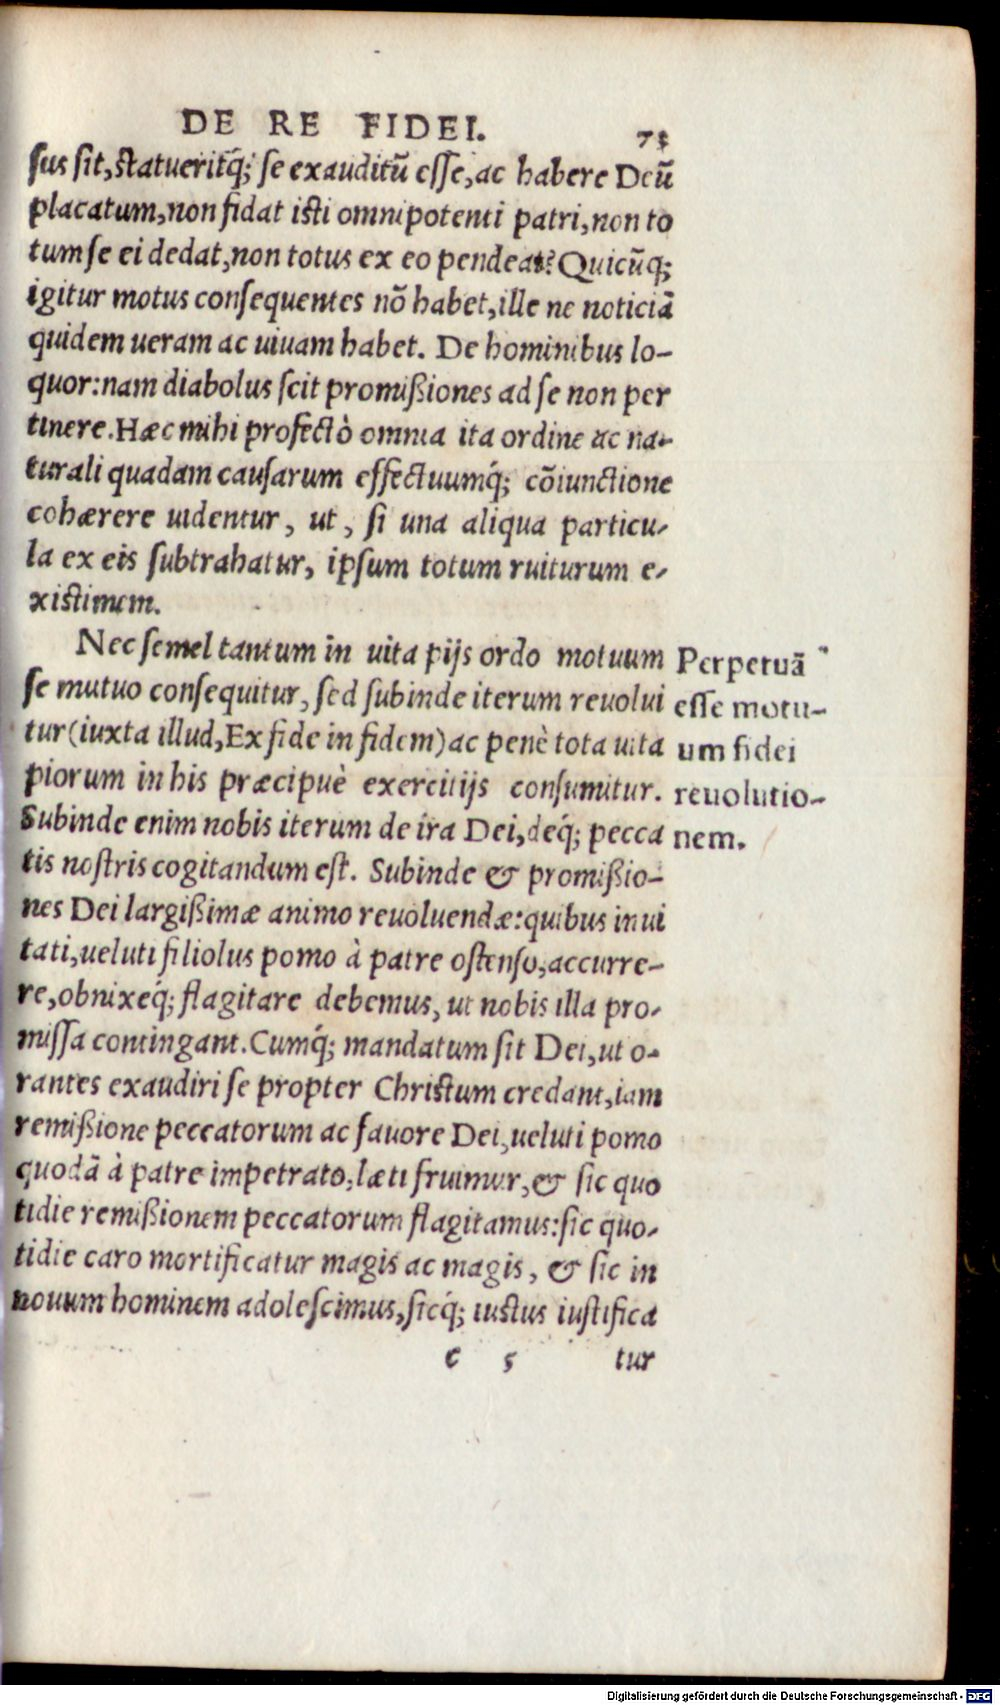 DE RE FIDEI.
sus sit, statueritq́; se exauditũ esse, ac habere Deũ
placatum, non fidat isti omnipotenti patri, non to
tum se ei dedat, non totus ex eo pendeat? Quicũq;
igitur motus consequentes nõ habet, ille ne noticiã
quidem ueram ac uiuam habet. De hominibus lo-
quor: nam diabolus scit promißiones ad se non per
tinere. Hæc mihi profectò omnia ita ordine ac na-
turali quadam causarum effectuumq́; cõiunctione
cohærere uidentur, ut, si una aliqua particu-
la ex eis subtrahatur, ipsum totum ruiturum e-
xistimem.
Nec semel tantum in uita pijs ordo motuum
se mutuo consequitur, sed subinde iterum reuolui
tur (iuxta illud, Ex fide in fidem) ac penè tota uita
piorum in his præcipuè exercitijs consumitur.
Subinde enim nobis iterum de ira Dei, deq́; pecca
tis nostris cogitandum est. Subinde & promißio-
nes Dei largißimæ animo reuoluendæ: quibus inui
tati, ueluti filiolus pomo à patre ostenso, accurre-
re, obnixeq́; flagitare debemus, ut nobis illa pro-
missa contingant. Cumq́; mandatum sit Dei, ut o-
rantes exaudiri se propter Christum credant, iam
remißione peccatorum ac fauore Dei, ueluti pomo
quodã à patre impetrato, læti fruimur, & sic quo
tidie remißionem peccatorum flagitamus: sic quo-
tidie caro mortificatur magis ac magis, & sic in
nouum hominem adolescimus, sicq́; iustus iustifica
c 5 tur
Perpetuã
esse motu-
um fidei
reuolutio-
nem.
Digitalisierung gefördert durch die Deutsche Forschungsgemeinschaft - DFG